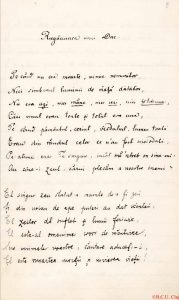 Rugăciunea unui Dac
Pe când nu era moarte, nimic nemuritor
Nici sâmburul luminii de viață dătător,
Nu era azi, nici mâne, nici ieri, nici totdeuna,
Căci unul erau toate și totul era una
Pe când pământul, cerul, văzduhul, lumea toată
Erau din rândul celor ce n'au fost niciodată
Pe atunci erai Tu singur, încât mă întreb în sine-mi
Au cine-i zeul, cărui plecăm a noastre inemi?
El singur zeu stătut-a nainte de-a fi zeii
Și din noian de ape puteri au dat scânteii
El zeilor dă suflet și lumii fericire
El este-al omenimei izvor de mântuire.
Sus inimele voastre, cântare aduceți-i,
El este moartea morții și învierea vieții!
©B.C.U. Cluj